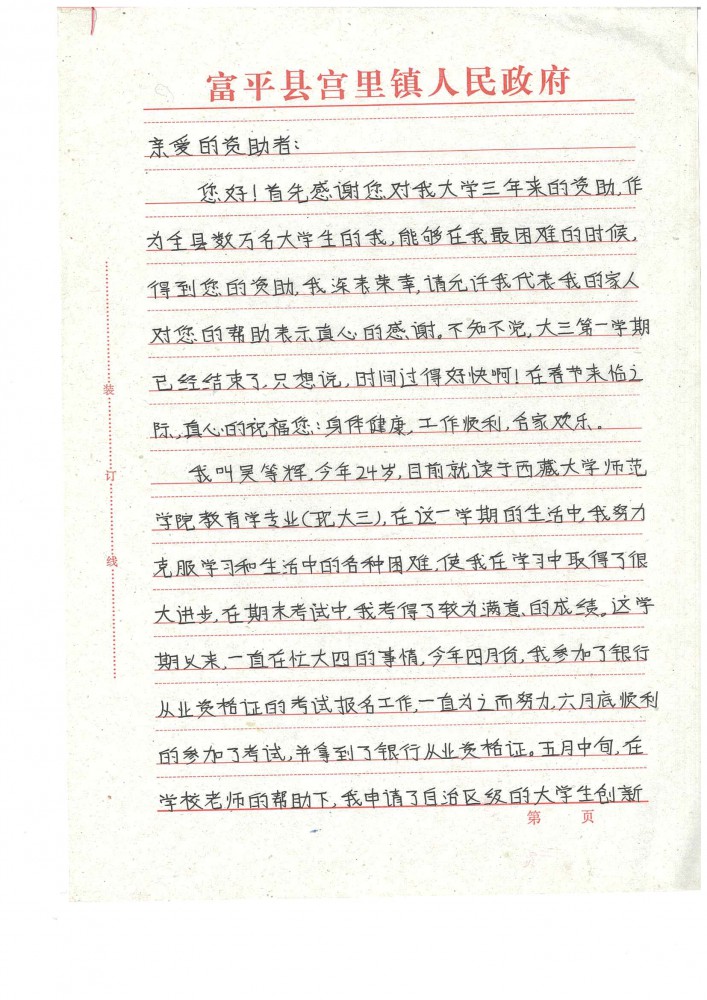 富平县宫里镇人民政府
亲爱的资助者：
您好！首先感谢您对我大学三年来的资助，作
为全县数万名大学生的我，能够在我最困难的时候，
得到您的资助，我深表荣幸，请允许我代表我的家人
对您的帮助表示真心的感谢。不知不觉，大三第一学期
已经结束了，只想说，时间过得好快啊！在春节来临之
际，真心的祝福您：身体健康，工作顺利，合家欢乐。
我叫吴等辉，今年24岁，目前就读于西藏大学师范
学院教育学专业（现大三），在这一学期的生活中，我努力
克服学习和生活中的各种困难，使我在学习中取得了很
大进步，在期末考试中，我考得了较为满意的成绩。这学
期以来，一直在忙大四的事情，今年四月份，我参加了银行
从业资格证的考试报名工作，一直为之而努力，六月底顺利
的参加了考试，并拿到了银行从业资格证。五月中旬，在
学校老师的帮助下，我申请了自治区级的大学生创新
第 页
装
订
线